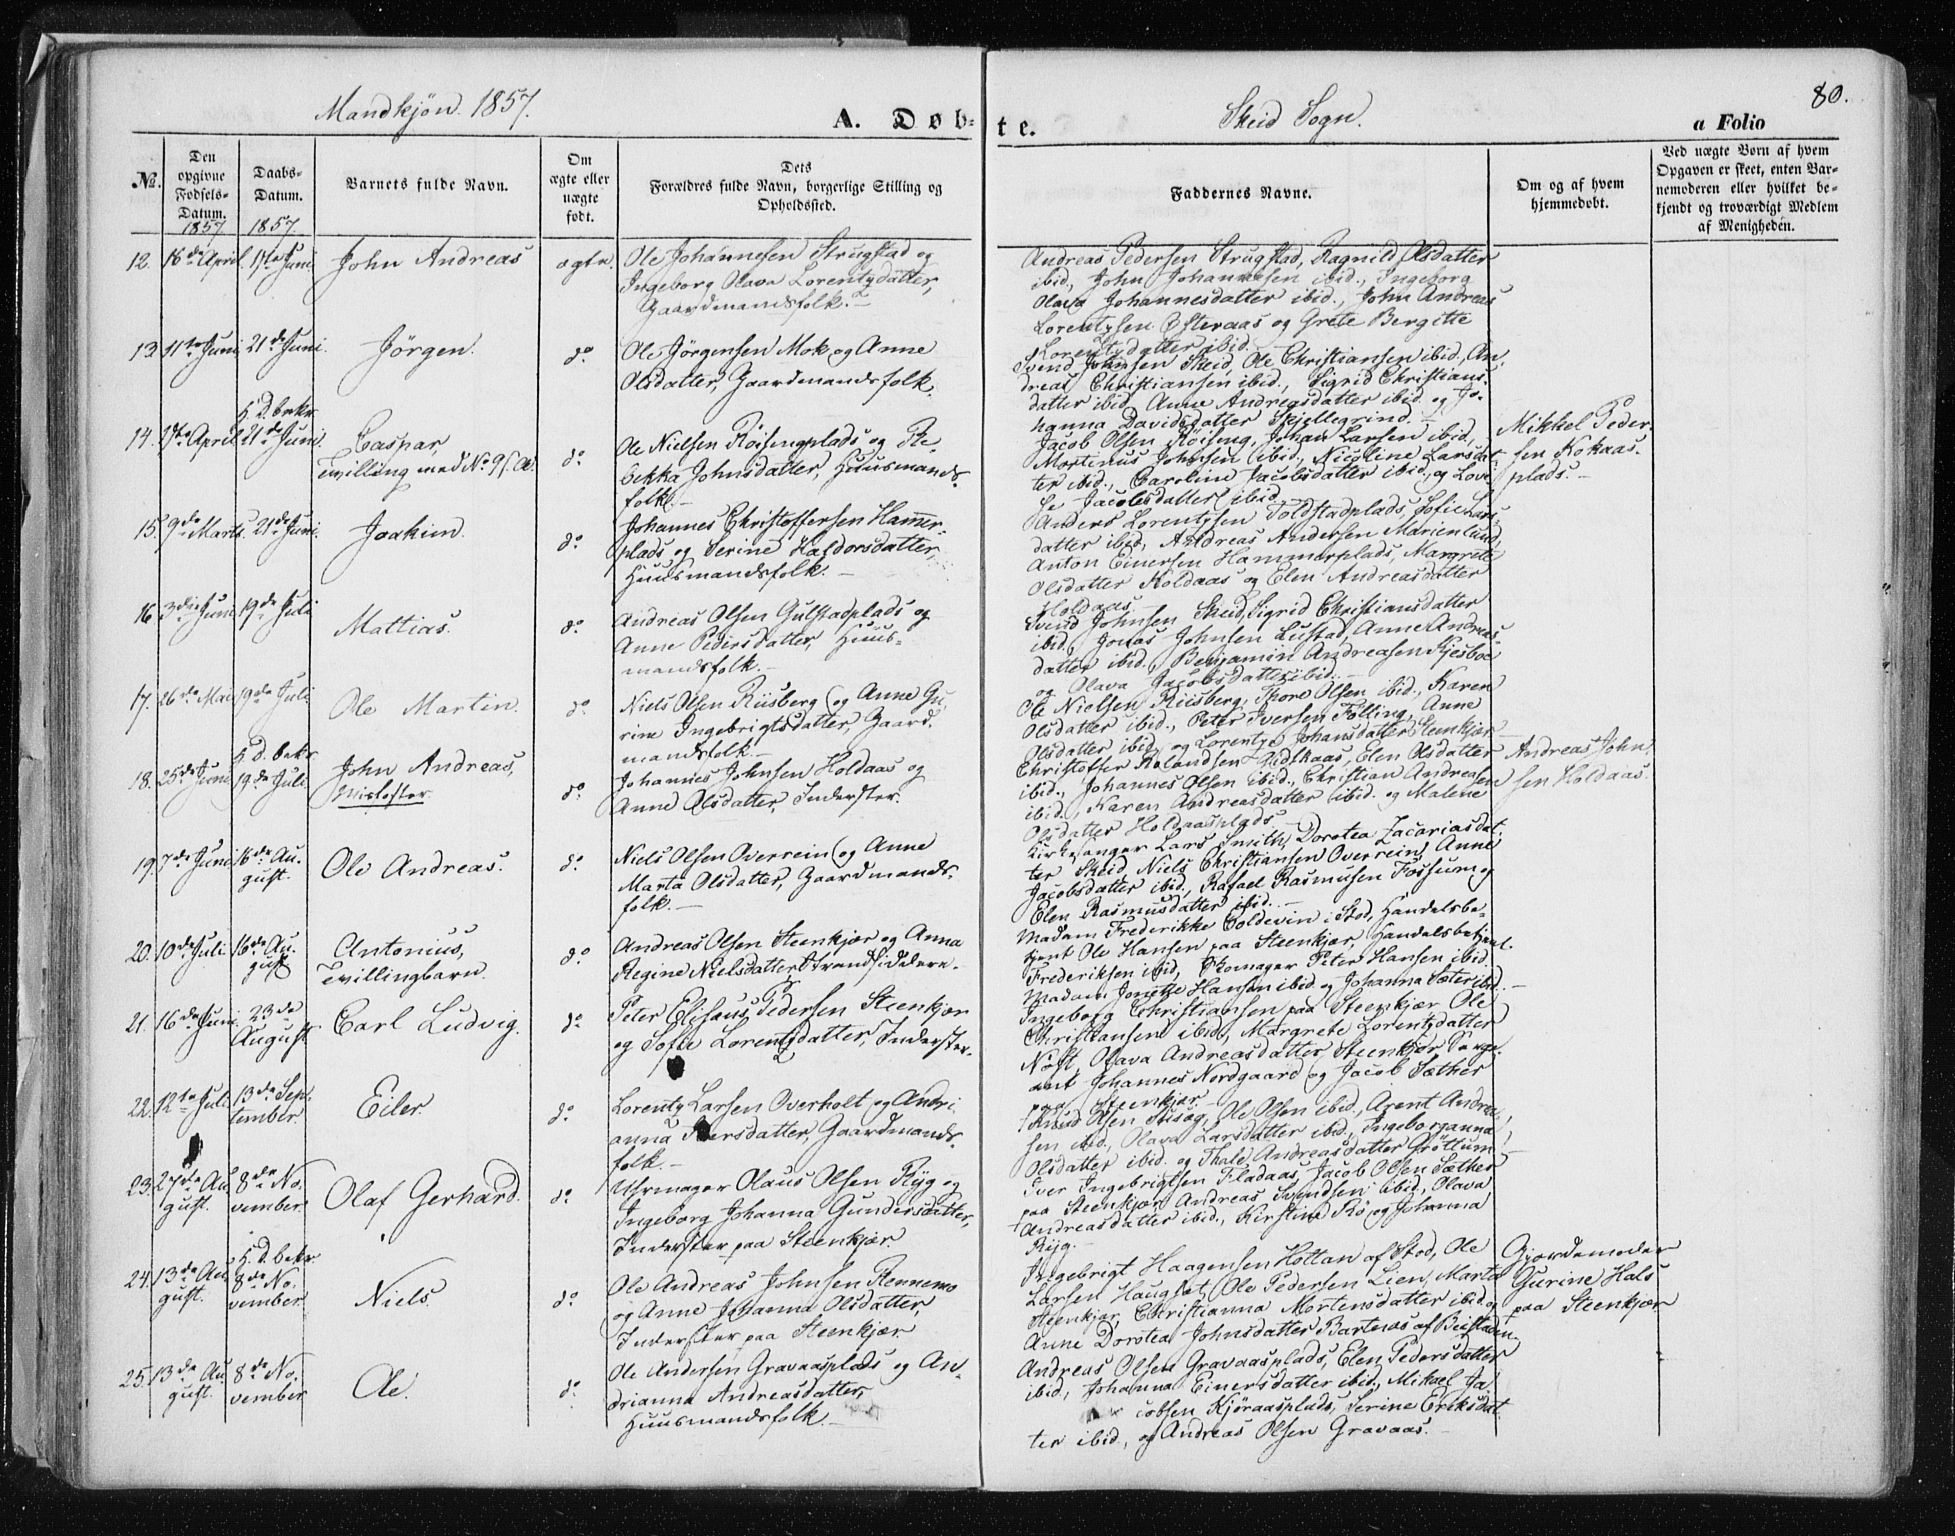 Mandkjøn. 1857.
A. Døb-
te.
Skeid Sogn.
80.
a Folio
No.
Den opgivne Fødsels-Datum.
1857
Daabs-Datum.
1857.
Barnets fulde Navn.
Om ægte eller uægte født.
Dets Forældres fulde Navn, borgerlige Stilling og Opholdssted.
Faddernes Navne.
Om og af hvem hjemmedøbt.
Ved uægte Børn af hvem Opgaven er skeet, enten Barnemoderen eller hvilket bekjendt og troværdigt Medlem af Menigheden.
12. 16de April. 1ste Juni John Andreas ægte.
Ole Johannesen Strugstad og
Ingeborg Olava Lorentzdatter,
Gaardmandsfolk.
Andreas Pedersen Strugstad, Ragnild Olsdatter
ibid, John Johannesen ibid., Ingeborg
Olava Johannesdatter ibid., John Andreas
Lorentzsen Østeraas og Grete Bergitte
Lorentzdatter ibid.
13. 11te Juni 21de Juni. Jörgen. do
Ole Jörgensen Mok og Anne
Olsdatter, Gaardmandsfolk.
Svend Johnsen Skeid, Ole Christiansen ibid., An-
dreas Christiansen ibid., Sigrid Christians-
datter ibid. Anne Andreasdatter ibid. og Jo-
hanna Davidsdatter Skjellegrind.
14. April H. D. bekr. 21de Juni. Caspar,
Tvilling med No 9 f. A. do
Ole Nielsen Röisengplads og Re-
bekka Johnsdatter, Huusmands-
folk.
Jacob Olsen Röiseng, Johan Larsen ibid,
Mortinus Johnsen ibid., Nicoline Larsdat-
ter ibid., Caroline Jacobsdatter ibid., og Lovi-
se Jacobsdatter ibid.
Mikkel Peder-
sen Kokaas-
plads.
15. 9de Marts. 21de Juni. Joakim. do
Johannes Christoffersen Hammer-
plads og Serine Haldorsdatter,
Huusmandsfolk.
Anders Lorentzsen Toldstadplads, Sofie Lars-
datter ibid, Andreas Andersen Marienlund,
Anton Einersen Hammerplads, Margrete
Olsdatter Holdaas og Elen Andreasdatter
Holdaas
16. 3die Juni 19de Juli Mattias. do
Andreas Olsen Gulstadplads og
Anne Pedersdatter, Huus-
mandsfolk.
Svend Johnsen Skeid, Sigrid Christiansdatter
ibid., Jonas Johnsen Lustad, Anne Andreas-
datter ibid., Benjamin Andreasen Kjesboe
og Olava Jacobsdatter ibid.
17. 26de Mai 19de Juli Ole Martin. do
Niels Olsen Riisberg og Anne Gu-
rine Ingebrigtsdatter, Gaard-
mandsfolk.
Ole Nielsen Riisberg, Thore Olsen ibid., Karen
Olsdatter ibid., Peter Iversen Følling, Anne
Olsdatter ibid. og Lorentze Johansdatter Steenkjær
18. 25de Juni H. D. bekr. 19de Juli. John Andreas,
do
Johannes Johnsen Holdaas og
Anne Olsdatter, Inderster.
Christoffer Rolandsen, Elen Olsdatter
ibid., Johannes Olsen ibid., Christian Andreasen
ibid., Karen Andreasdatter ibid. og Malene
Olsdatter Holdaasplads
Andreas John-
sen Holdaas.
19. 7de Juni 16de Au-
gust. Ole Andreas. do
Niels Olsen Overrein og Anne
Marta Olsdatter, Gaardmands-
folk.
Kirkesanger Lars Smith, Dorotea Zacariasdat-
ter Skeid, Niels Christiansen Overrein, Anne
Jacobsdatter ibid., Rafael Rasmusen Fossum og
Elen Rasmusdatter ibid.
20. 10de Juli 16de Au-
gust Antonius,
Tvillingbarn. do
Andreas Olsen Steenkjær og Anna
Regine Nielsdatter Strandsiddere.
Madam Frederikke Coldevin i Stod, Handelsbe-
tjent Ole Hansen paa Steenkjær, Handelsbetjent
Frederiksen ibid, Skomager Peter Hansen ibid.
Madam Jonette Hansen ibid og Johanna Sæter ibid.
21. 16de Juni 23de
August Carl Ludvig. do
Peter Elisæus Pedersen Steenkjær
og Sofie Lorentzdatter, Inderster.
Ingeborg Christiansen paa Steenkjær, Ole
Christiansen ibid., Margrete Lorentzdatter
Nöst, Olava Andreasdatter Steenkjær, Serge-
ant Johannes Nordgaard og Jacob Sæther
paa Steenkjær.
22. 12te Juli 13de Sep-
tember. Eiler. do
Lorentz Larsen Overholt og Andri-
anna Iversdatter, Gaardmands-
folk.
Knud Olsen, Ole Olsen ibid., Arent Andrea-
sen ibid., Olava Larsdatter ibid., Ingeborganna
Olsdatter ibid. og Thale Andreasdatter Gröttum
23. 27de Au-
gust. 8de No-
vember. Olaf Gerhard. do
Uhrmager Olaus Olsen Ryg og
Ingeborg Johanna Gundersdatter,
Inderster paa Steenkjær.
Iver Ingebrigtsen Fladaas, Jacob Olsen Sæther
paa Steenkjær, Andreas Svendsen ibid., Olava
Andreasdatter ibid., Kirstine Röe og Johanna
Ryg.
24. 13de Au-
gust. H. D. bekr.
8de No-
vember. Niels. do
Ole Andreas Johnsen Rennemo
og Anne Johanna Olsdatter
Inderster paa Steenkjær
Ingebrigt Haagensen Hottan af Stod, Ole
Larsen Haugset, Ole Pedersen Lien, Marta
Steenkjær, Christianna Mortensdatter ibid. og
Anne Dorotea Johnsdatter Bartnæs af Beitstaden.
Gjordemoder
Gurine Hals
paa Steenkjær
25. 13de Au-
gust. 8de No-
vember Ole. do
Ole Andersen Gravaasplads og An-
drianna Andreasdatter,
Huusmandsfolk.
Andreas Olsen Gravaasplads, Elen Pedersdatter
ibid, Johanna Einersdatter ibid., Mikael Ja-
cobsen Kjöraasplads, Serine Eriksdat-
ter ibid., og Andreas Olsen Gravaas.